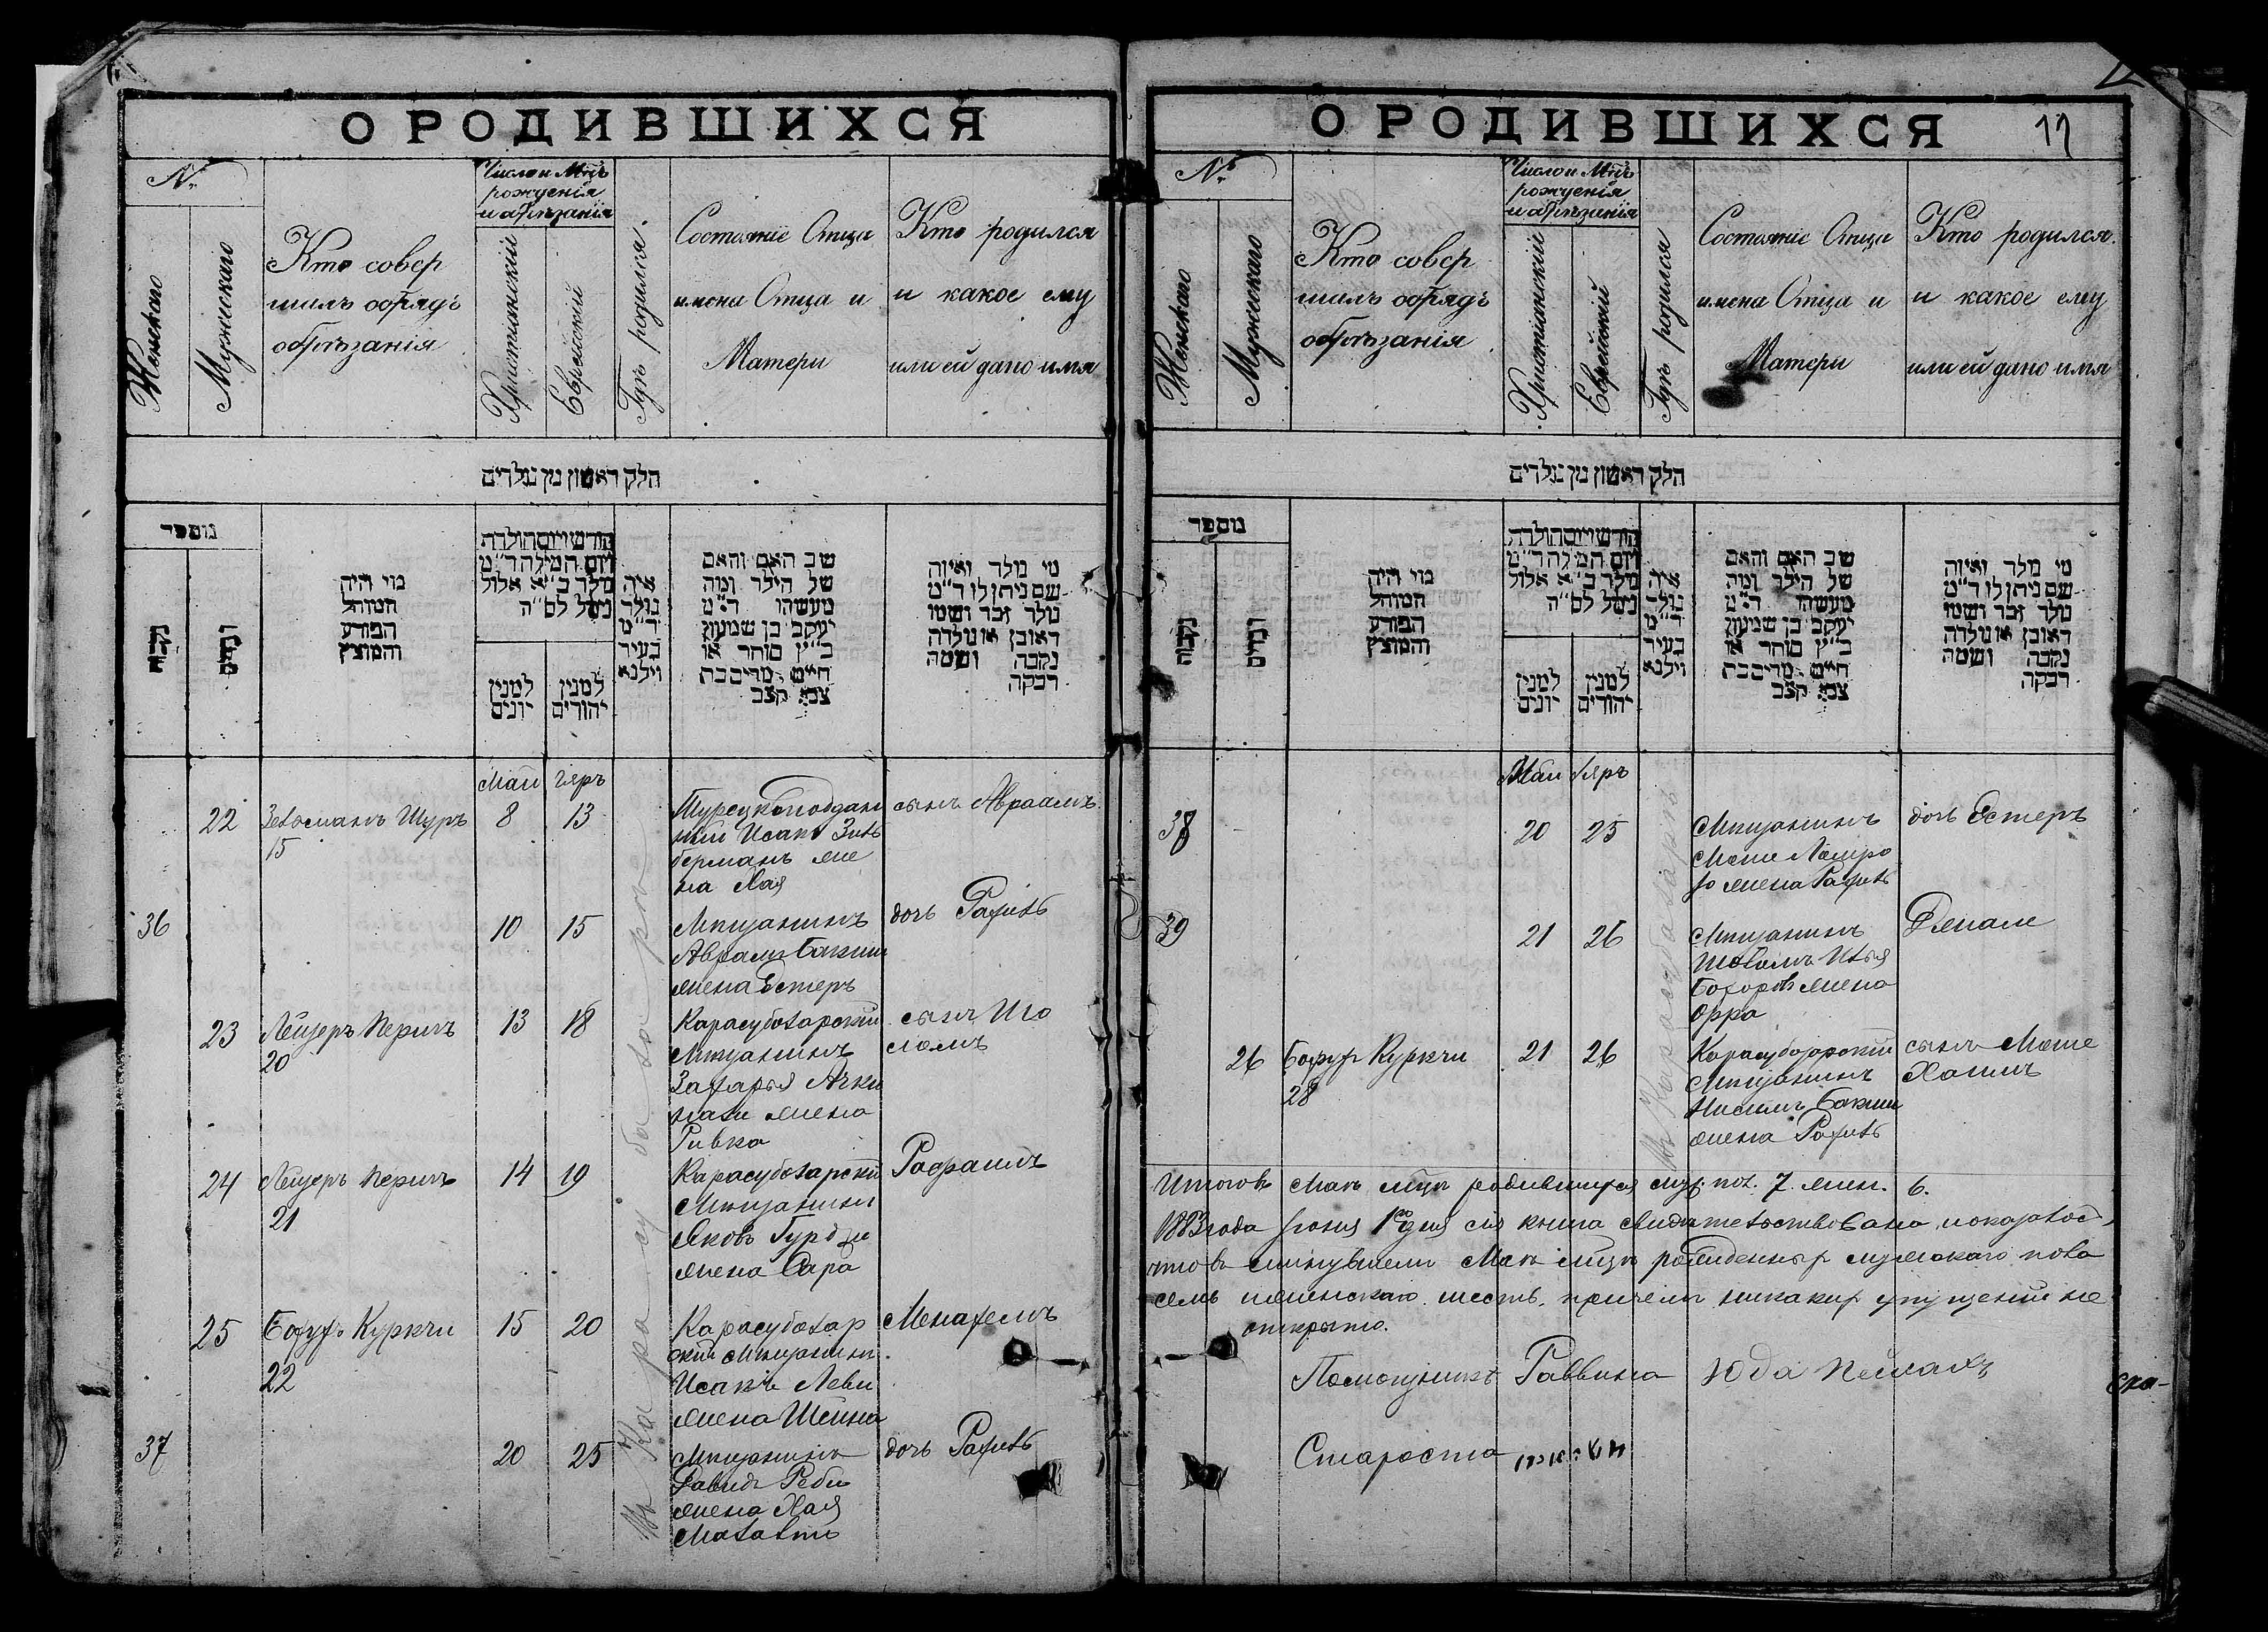 О РОДИВШИХСЯ
№
Женскаго
Мужескаго
Кто совер
шилъ обрядъ
обрѣзанія
Число и Мѣцъ
рожденія
и обрѣзанія
Христіанскій
Еврейскій
Гдѣ родился.
Состояніе Отца
имена Отца и
Матери
Кто родился
и какое ему
или ей дано имя
חלק ראשון מן נולדים
נומפר
נקבות
זכרים
מי היה
המוהל
הפורע
והמוצץ
חודש ויום הולדת
ויום המילה ד״מ
נולד כ״א אלול
נימל לס״ה
למנין
יונים
למנין
יהודים
איה
נולד
ד״מ
בעיר
וילנא
שם האם והאם
של הילד ומה
מעשהו ד״מ
יעקב בן שמעון
כ״ץ סוחר או
חיים מרים בת
צבי קצב
מי נולד ואיזה
שם ניתן לו ד״מ
נולד זכר ושמו
ראובן או נולדה
נקבה ושמה
רבקה
Май Іяръ
22 Шуръ 8 13
15
Турецкоподдан
ный Исакъ Зиль
берманъ жена
Хая
сынъ Авраамъ
36 10 15
Мѣщанинъ
Аврамъ Бакши
жена Естеръ
дочь Рахиль
23 Лейзеръ Перичъ 13 18
20
Карасубазарскій
Мѣщанинъ
Захарья Ачки
нази жена
Ривка
сынъ Шо
ломъ
24 Лейзеръ Перичъ 14 19
21
Карасубазарскій
Мѣщанинъ
Яковъ Гурджи
жена Сара
Рафаилъ
25 Бохуръ Куркчи 15 20
22
Карасубазар
скій Мѣщанинъ
Исакъ Леви
жена Шейна
Менахемъ
37 20 25
Мѣщанинъ
Давидъ Реби
жена Хая
дочь Рахиль
Въ Карасубазарѣ
О РОДИВШИХСЯ 17
№
Женскаго
Мужескаго
Кто совер
шилъ обрядъ
обрѣзанія
Число и Мѣцъ
рожденія
и обрѣзанія
Христіанскій
Еврейскій
Гдѣ родился
Состояніе Отца
имена Отца и
Матери
Кто родился
и какое ему
или ей дано имя
חלק ראשון מן נולדים
נומפר
נקבות
זכרים
מי היה
המוהל
הפורע
והמוצץ
חודש ויום הולדת
ויום המילה ד״מ
נולד כ״א אלול
נימל לס״ה
למנין
יונים
למנין
יהודים
איה
נולד
ד״מ
בעיר
וילנא
שם האם והאם
של הילד ומה
מעשהו ד״מ
יעקב בן שמעון
כ״ץ סוחר או
חיים מרים בת
צבי קצב
מי נולד ואיזה
שם ניתן לו ד״מ
נולד זכר ושמו
ראובן או נולדה
נקבה ושמה
רבקה
Май Іяръ
38 20 25
Мѣщанинъ
Моше
жена Рахиль
дочь Естеръ
39 21 26
Мѣщанинъ
Шоломъ Илья
Бохоровъ жена
Орра
26 Бохуръ Куркчи 21 26
28
Карасубазарскій
Мѣщанинъ
Нисимъ Бакши
жена Рахиль
сынъ Моше
Хаимъ
Въ Карасубазарѣ
Итого въ Маѣ мѣцѣ родившихся муж. пол. 7. жен. 6.
1883 года Іюня 1го дня сія книга свидѣтельствована, показалось,
что въ минувшемъ Маѣ мѣцѣ рожденныхъ мужскаго пола
семь и женскаго шесть, причемъ никакихъ упущеній не
открыто.
Помощникъ Раввина Юда Пейсахъ
Староста